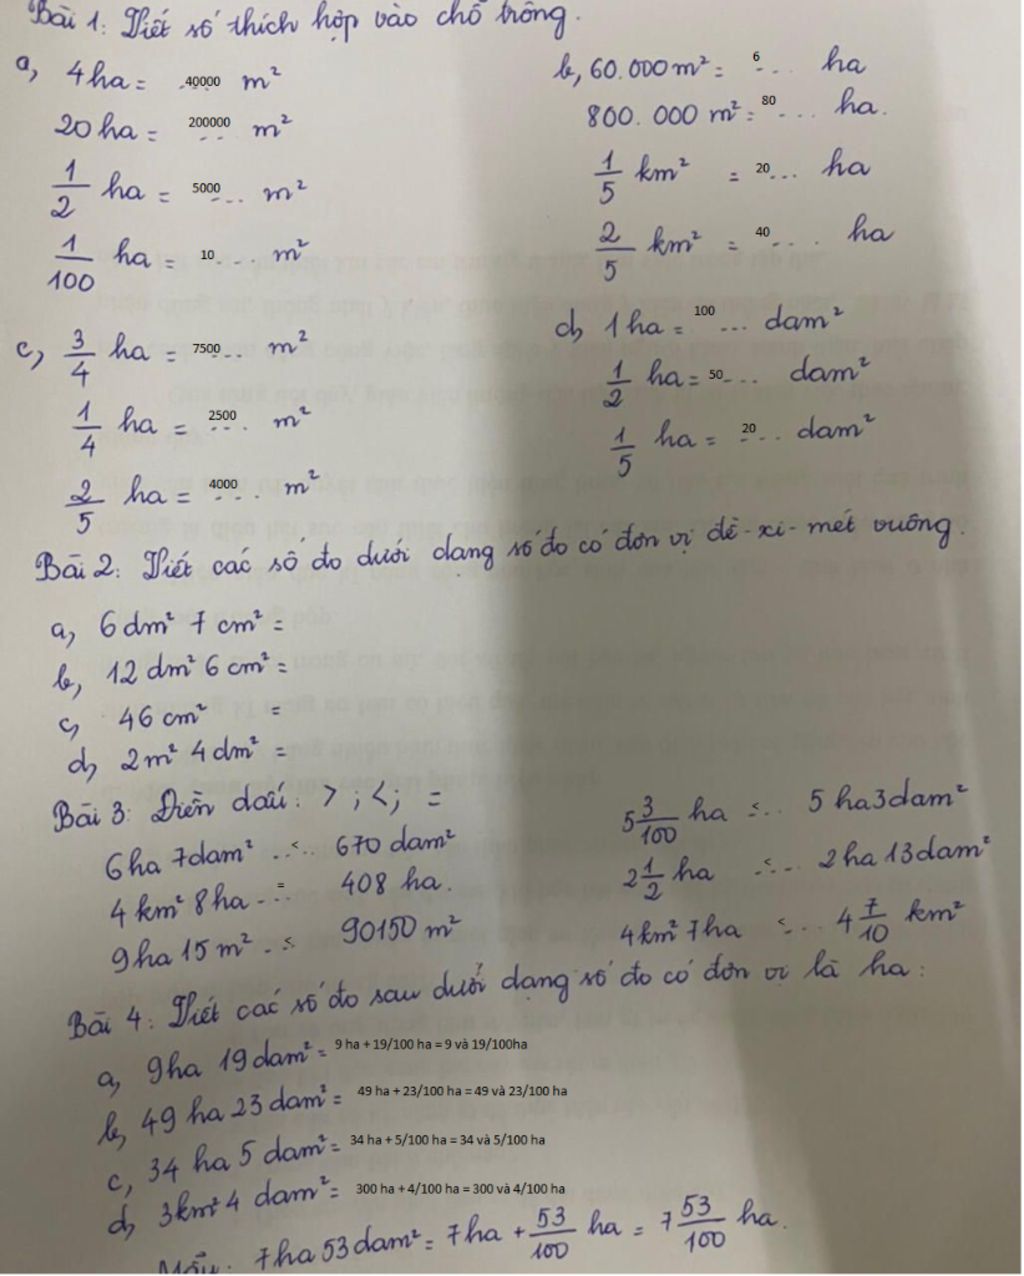 Bài 1: Viết số thích hợp vào chỗ trống.
a, 4ha = .40000 m²
20 ha = 200000 .. m²
1/2 ha = 5000 ... m²
1/100 ha = 10 .... m²
b, 60.000 m² = 6 ... ha
800.000 m² = 80 .... ha.
1/5 km² = 20 ... ha
2/5 km² = 40 .... ha
c, 3/4 ha = 7500 ... m²
1/4 ha = 2500 ... m²
2/5 ha = 4000 .... m²
d, 1 ha = 100 ... dam²
1/2 ha = 50 ... dam²
1/5 ha = 20 ... dam²
Bài 2: Viết các số đo dưới dạng số đo có đơn vị đề-xi-mét vuông.
a, 6 dm² 7 cm² =
b, 12 dm² 6 cm² =
c, 46 cm² =
d, 2 m² 4 dm² =
Bài 3: Điền dấu: > ; < ; =
6ha 7dam² ..<.. 670 dam²
4 km² 8 ha ..=.. 408 ha.
9ha 15 m² ..< 90150 m²
5 3/100 ha =.. 5 ha3dam²
2 1/2 ha <... 2 ha 13dam²
4km² 7ha <... 4 7/10 km²
Bài 4: Viết các số đo sau dưới dạng số đo có đơn vị là ha:
a, 9ha 19 dam² = 9 ha + 19/100 ha = 9 và 19/100ha
b, 49 ha 23 dam² = 49 ha + 23/100 ha = 49 và 23/100 ha
c, 34 ha 5 dam² = 34 ha + 5/100 ha = 34 và 5/100 ha
d, 3km² 4 dam² = 300 ha + 4/100 ha = 300 và 4/100 ha
Mẫu: 7ha 53 dam² = 7ha + 53/100 ha = 7 53/100 ha.